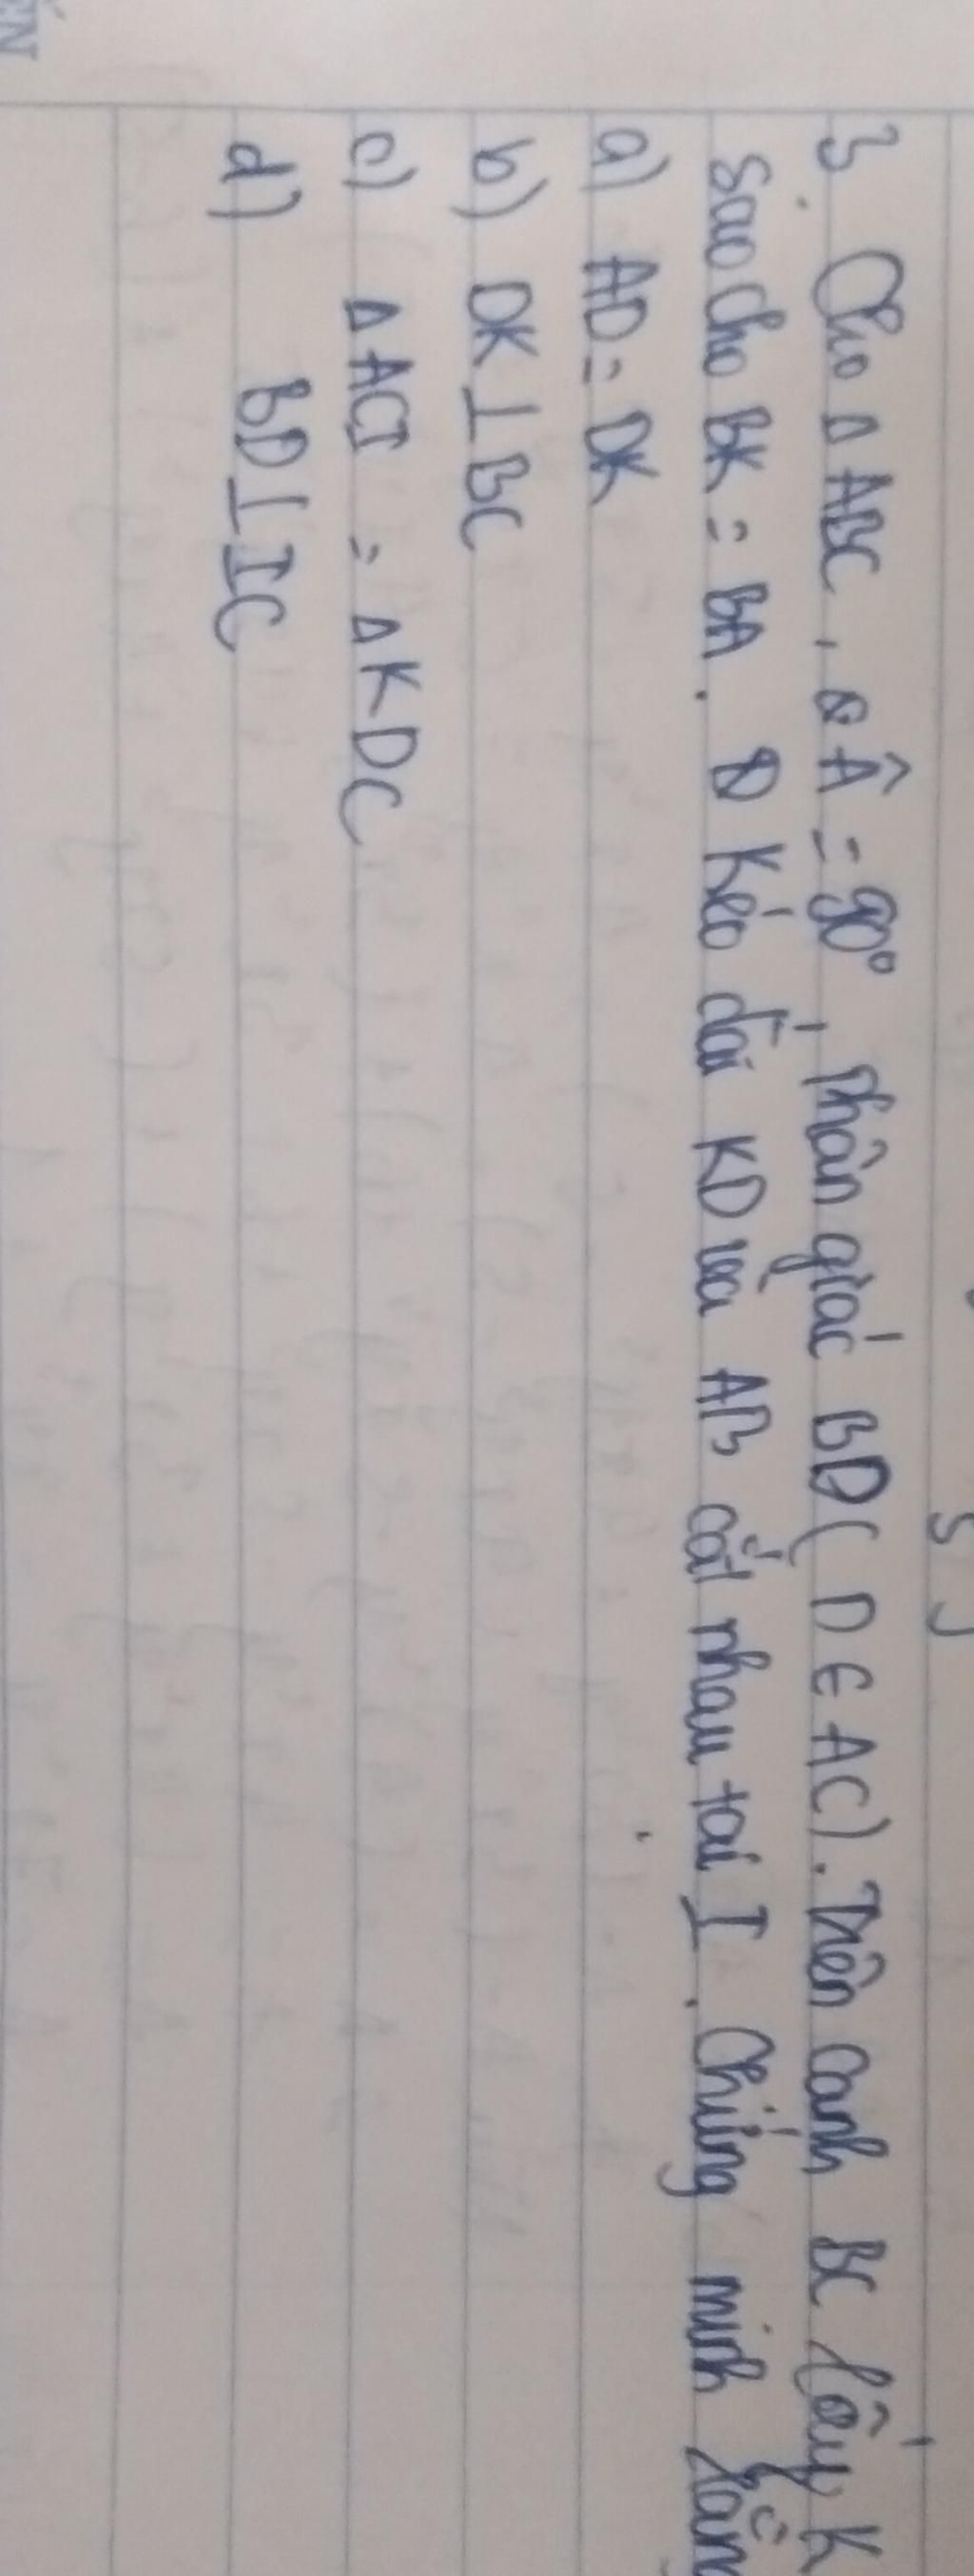 3. Cho Δ ABC, Â = 90°, phân giác BD ( D ∈ AC). Trên cạnh BC lấy K
sao cho BK = BA. Kéo dài KD và AB cắt nhau tại I. Chứng minh rằng
a) AD = DK
b) DK ⊥ BC
c) Δ ACI = Δ KDC
d) BD ⊥ IC